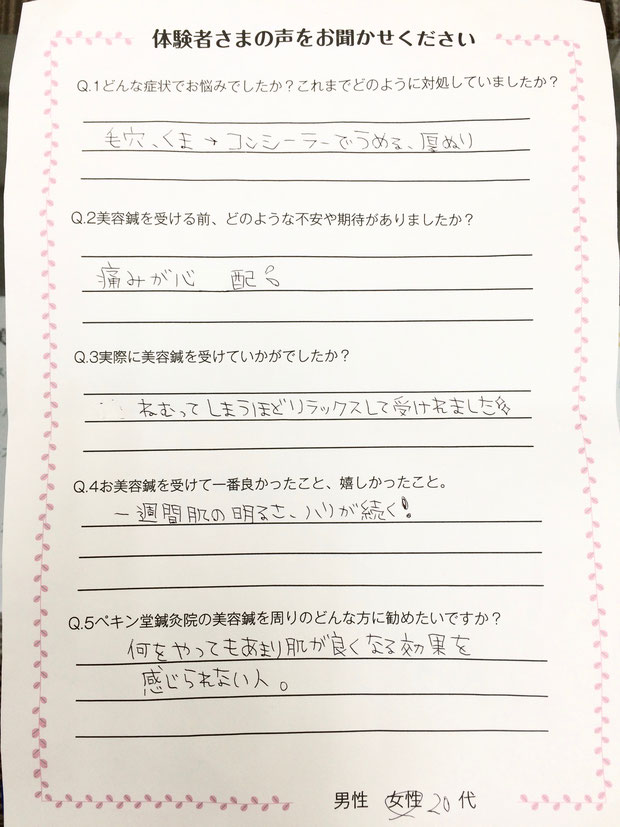 体験者さまの声をお聞かせください
Q.1どんな症状でお悩みでしたか？これまでどのように対処していましたか？
毛穴、くま→コンシーラーでうめる、厚ぬり
Q.2美容鍼を受ける前、どのような不安や期待がありましたか？
痛みが心 配
Q.3実際に美容鍼を受けていかがでしたか？
ねむってしまうほどリラックスして受けれました
Q.4お美容鍼を受けて一番良かったこと、嬉しかったこと。
一週間肌の明るさ、ハリが続く!
Q.5ペキン堂鍼灸院の美容鍼を周りのどんな方に勧めたいですか？
何をやってもあまり肌が良くなる効果を
感じられない人。
男性 女性 20代